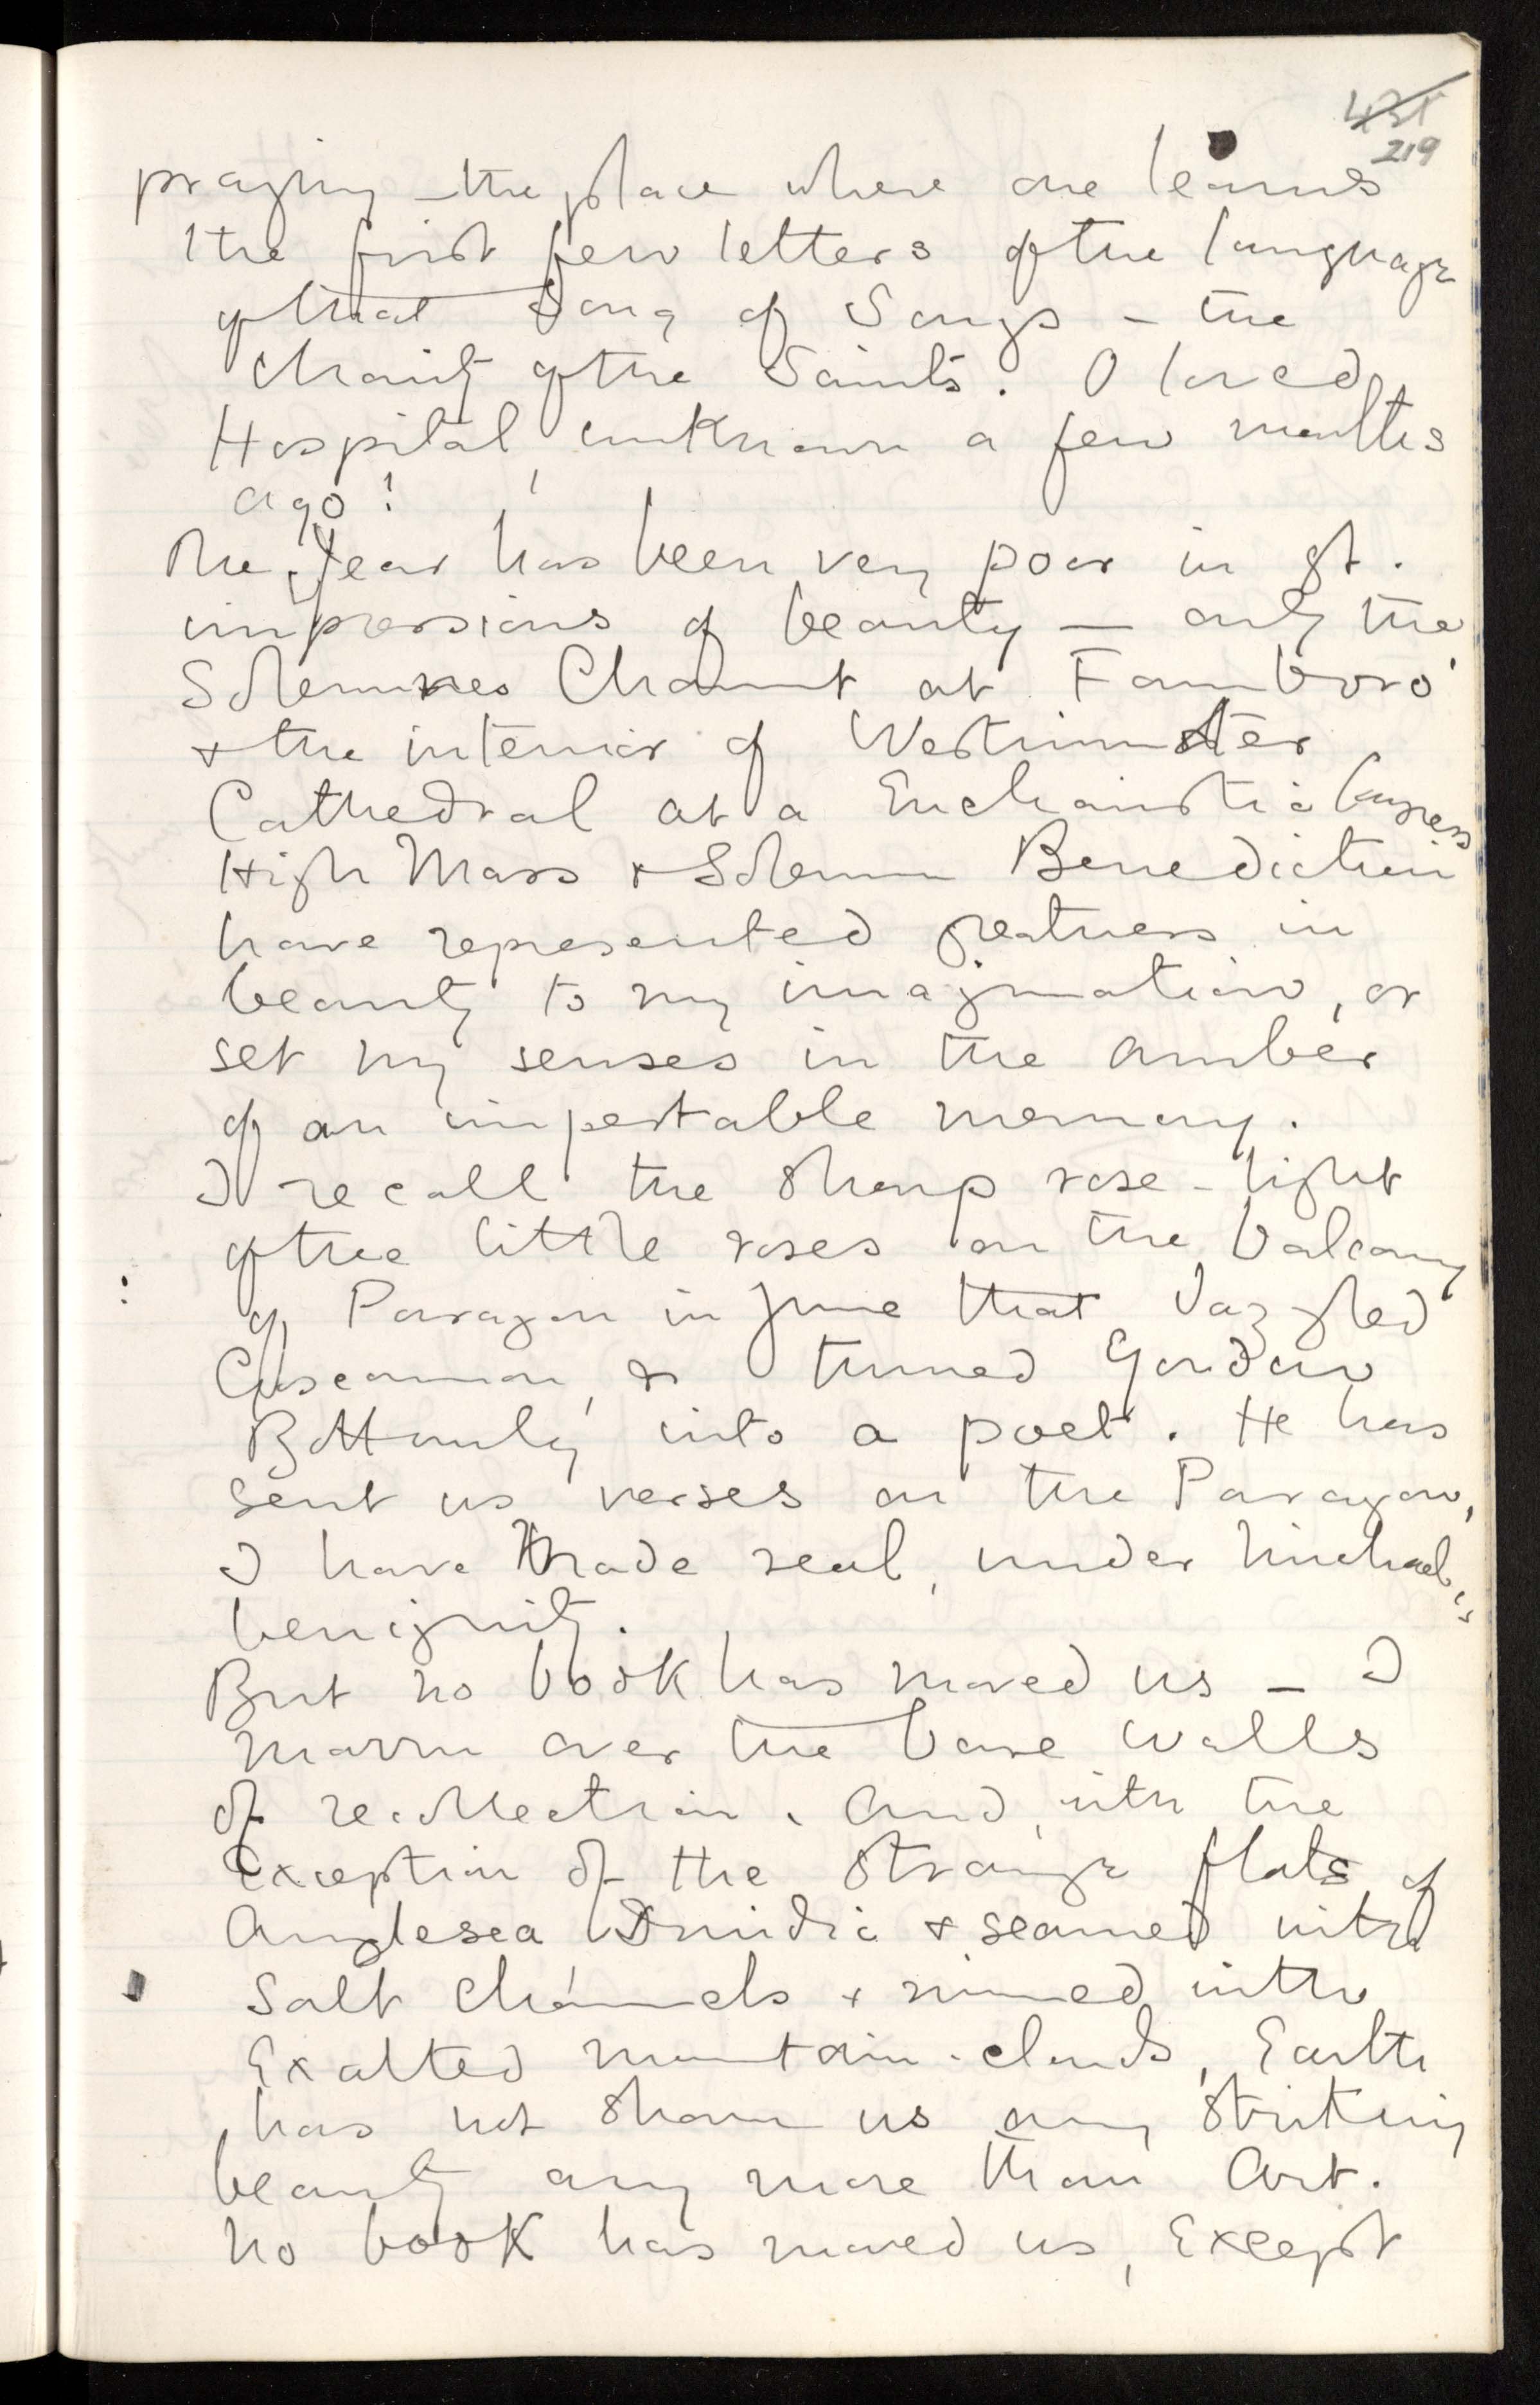 435
219
praying – the place where one learns
the first few letters of the language
of that Song of Songs – the
Chanty of the Saints. O loved
Hospital, unknown a few months
ago!
The Year has been very poor in gt.
impressions of beauty – only the
Solemnes Chaunt at Farnboro'
& the interior of Westminster
Cathedral at a Eucharistic Congress
High Mass & Solemn Benediction
have represented greatness in
beauty to my imagination, or
set my senses in the amber
of an unpestable memory.
I recall the sharp rose-light
of the little roses on the balcony
of Paragon in June that dazzled
Gascannon, & turned Gordon
Bottomley into a poet. He has
sent us verses on the Paragon,
I have made real, under Michael's
benignity.
But no book has moved us – I
mourn over the bare walls
of recollection. And, with the
Exception of the strange flats of
Anglesea Druidic & seamed with
Salt channels & rimed with
Exalted mountain-clouds, Earth
has not shown us any striking
beauty any more than Art.
No book has moved us, Except